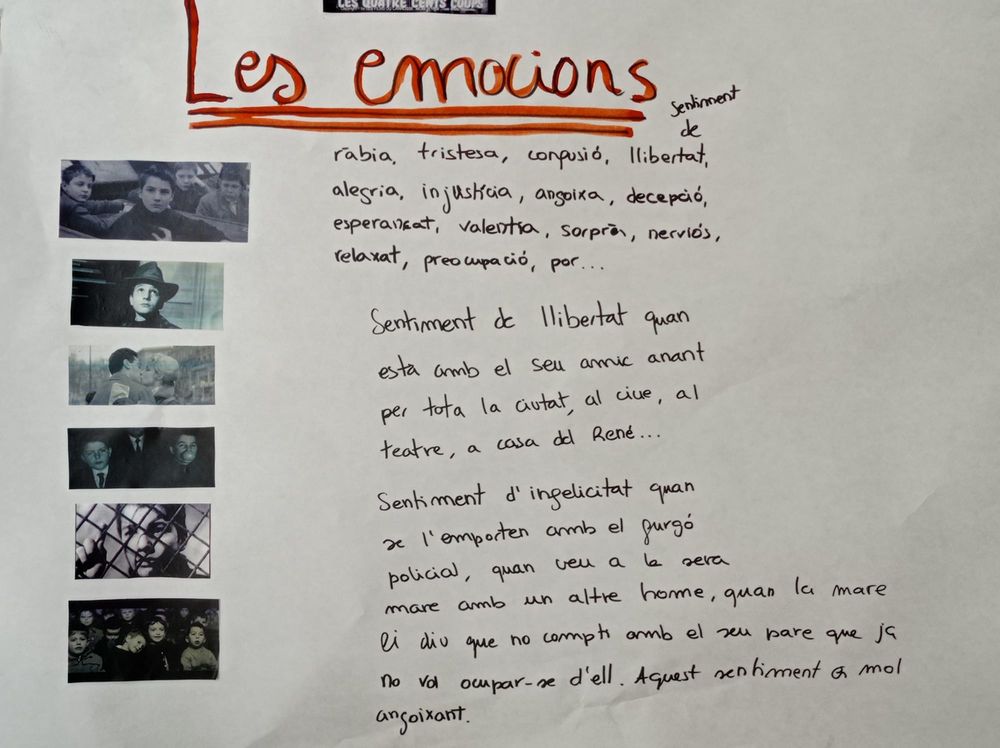 LES QUATRE CENTS COUPS
Les emocions
sentiment
de
ràbia, tristesa, confusió, llibertat,
alegria, injustícia, angoixa, decepció,
esperançat, valentia, sorprès, nerviós,
relaxat, preocupació, por...
Sentiment de llibertat quan
està amb el seu amic anant
per tota la ciutat, al cine, al
teatre, a casa del René...
Sentiment d'infelicitat quan
se l'emporten amb el furgó
policial, quan veu a la seva
mare amb un altre home, quan la mare
li diu que no compti amb el seu pare que ja
no vol ocupar-se d'ell. Aquest sentiment és mol
angoixant.